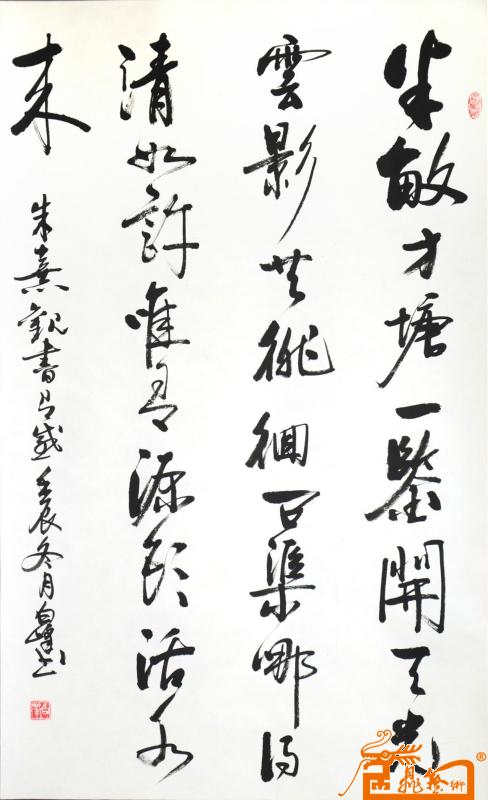 半畝方塘一鑒開天光
雲影共徘徊问渠哪得
清如許唯有源頭活水
来
朱熹觀書有感壬辰冬月白峰书